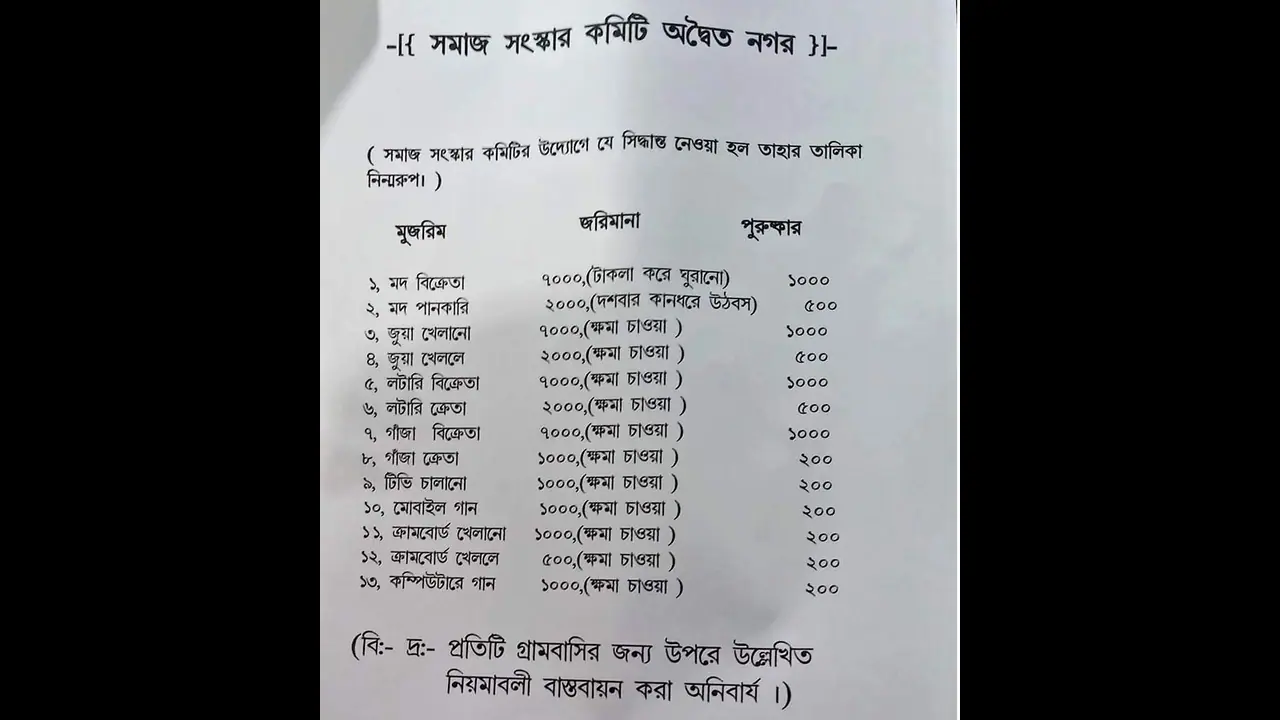 -[{ সমাজ সংস্কার কমিটি অদ্বৈত নগর }]-
( সমাজ সংস্কার কমিটির উদ্যোগে যে সিদ্ধান্ত নেওয়া হল তাহার তালিকা
নিন্মরুপ। )
মুজরিম জরিমানা পুরুষ্কার
১, মদ বিক্রেতা ৭০০০,(টাকলা করে ঘুরানো) ১০০০
২, মদ পানকারি ২০০০,(দশবার কানধরে উঠবস) ৫০০
৩, জুয়া খেলানো ৭০০০,(ক্ষমা চাওয়া ) ১০০০
৪, জুয়া খেললে ২০০০,(ক্ষমা চাওয়া ) ৫০০
৫, লটারি বিক্রেতা ৭০০০,(ক্ষমা চাওয়া ) ১০০০
৬, লটারি ক্রেতা ২০০০,(ক্ষমা চাওয়া ) ৫০০
৭, গাঁজা বিক্রেতা ৭০০০,(ক্ষমা চাওয়া ) ১০০০
৮, গাঁজা ক্রেতা ১০০০,(ক্ষমা চাওয়া ) ২০০
৯, টিভি চালানো ১০০০,(ক্ষমা চাওয়া ) ২০০
১০, মোবাইল গান ১০০০,(ক্ষমা চাওয়া ) ২০০
১১, ক্রামবোর্ড খেলানো ১০০০,(ক্ষমা চাওয়া ) ২০০
১২, ক্রামবোর্ড খেললে ৫০০,(ক্ষমা চাওয়া ) ২০০
১৩, কম্পিউটারে গান ১০০০,(ক্ষমা চাওয়া ) ২০০
(বি:- দ্র:- প্রতিটি গ্রামবাসির জন্য উপরে উল্লেখিত
নিয়মাবলী বাস্তবায়ন করা অনিবার্য ।)